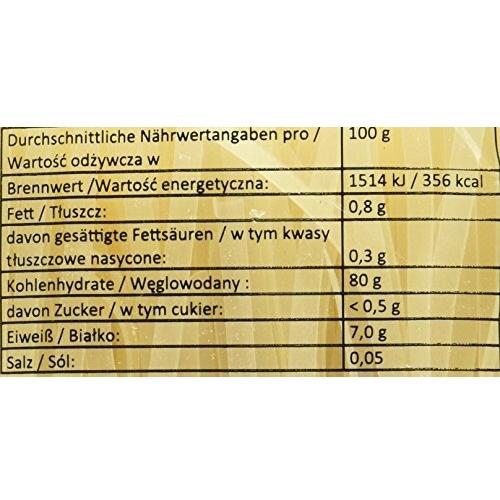 Durchschnittliche Nährwertangaben pro / 100 g
Wartość odżywcza w
Brennwert /Wartość energetyczna: 1514 kJ / 356 kcal
Fett / Tłuszcz: 0,8 g
davon gesättigte Fettsäuren / w tym kwasy
tłuszczowe nasycone: 0,3 g
Kohlenhydrate / Węglowodany : 80 g
davon Zucker / w tym cukier: < 0,5 g
Eiweiß / Białko: 7,0 g
Salz / Sól: 0,05